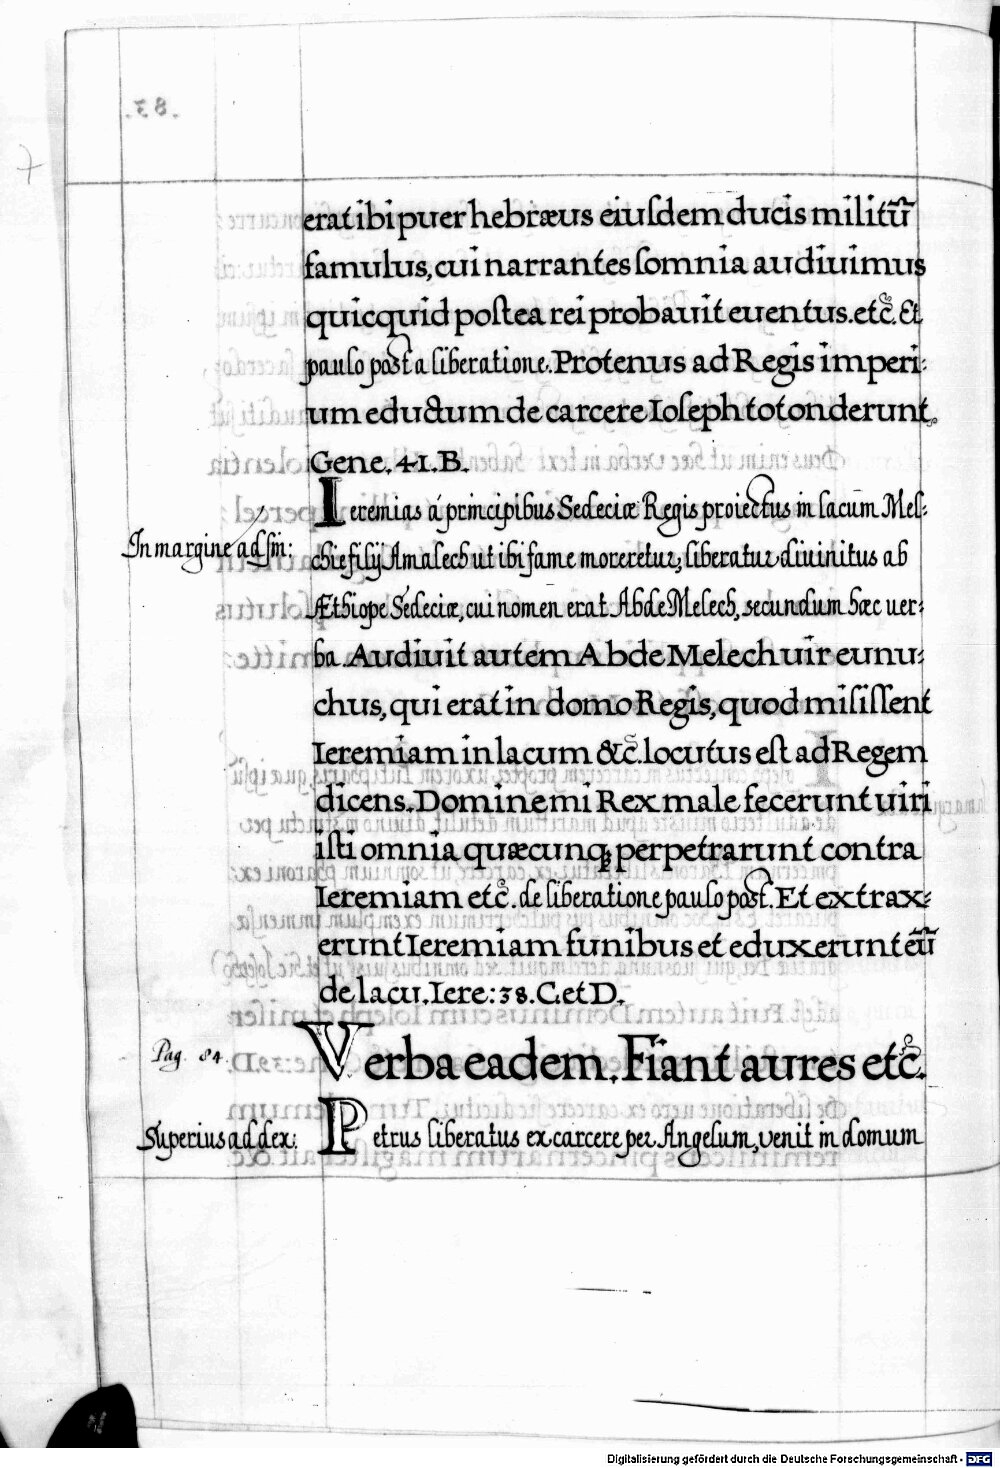 erat ibi puer hebræus eiuſdem ducis militū
famulus, cui narrantes ſomnia audiuimus
quicquid poſtea rei probauit euentus. etc̃. Et
paulo post a liberatione. Protenus ad Regis imperi-
um eductum de carcere Ioſeph totonderunt.
Gene. 41. B.
Ieremias á principibus Sedeciæ Regis proiectus in lacum Mel-
In margine ad sin:
chie filij Amalech ut ibi fame moreretur, liberatur diuinitus ab
Æthiope Sedeciæ, cui nomen erat AbdeMelech, secundum hæc uer-
ba. Audiuit autem AbdeMelech uir eunu-
chus, qui erat in domo Regis, quod miſiſſent
Ieremiam in lacum &c̃. locutus eſt ad Regem
dicens. Domine mi Rex male fecerunt uiri
iſti omnia quæcunq; perpetrarunt contra
Ieremiam etc̃. de liberatione paulo post. Et extrax-
erunt Ieremiam funibus et eduxerunt eū
de lacu. Iere: 38. C. et D.
Pag. 84.
Verba eadem. Fiant aures etc̃.
Superius ad dex:
Petrus liberatus ex carcere per Angelum, venit in domum
Digitalisierung gefördert durch die Deutsche Forschungsgemeinschaft - DFG